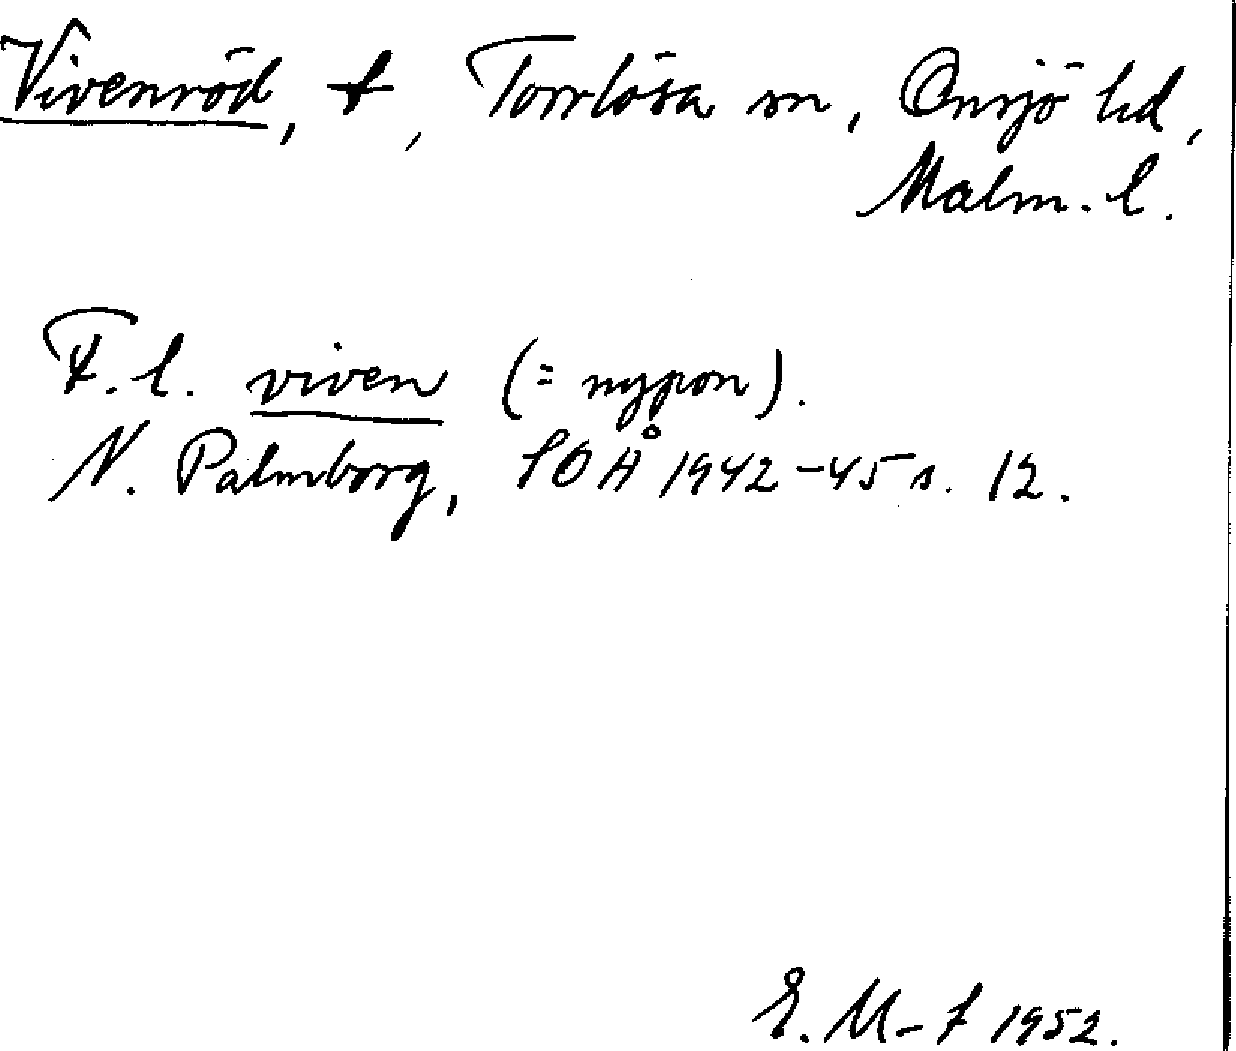 Vivenröd, t, Torrlösa sn, Onsjö hd,
Malm. l.
F. l. viven (= nypon).
N. Palmborg, SOÅ 1942-45 s. 12.
E. M-f 1952.